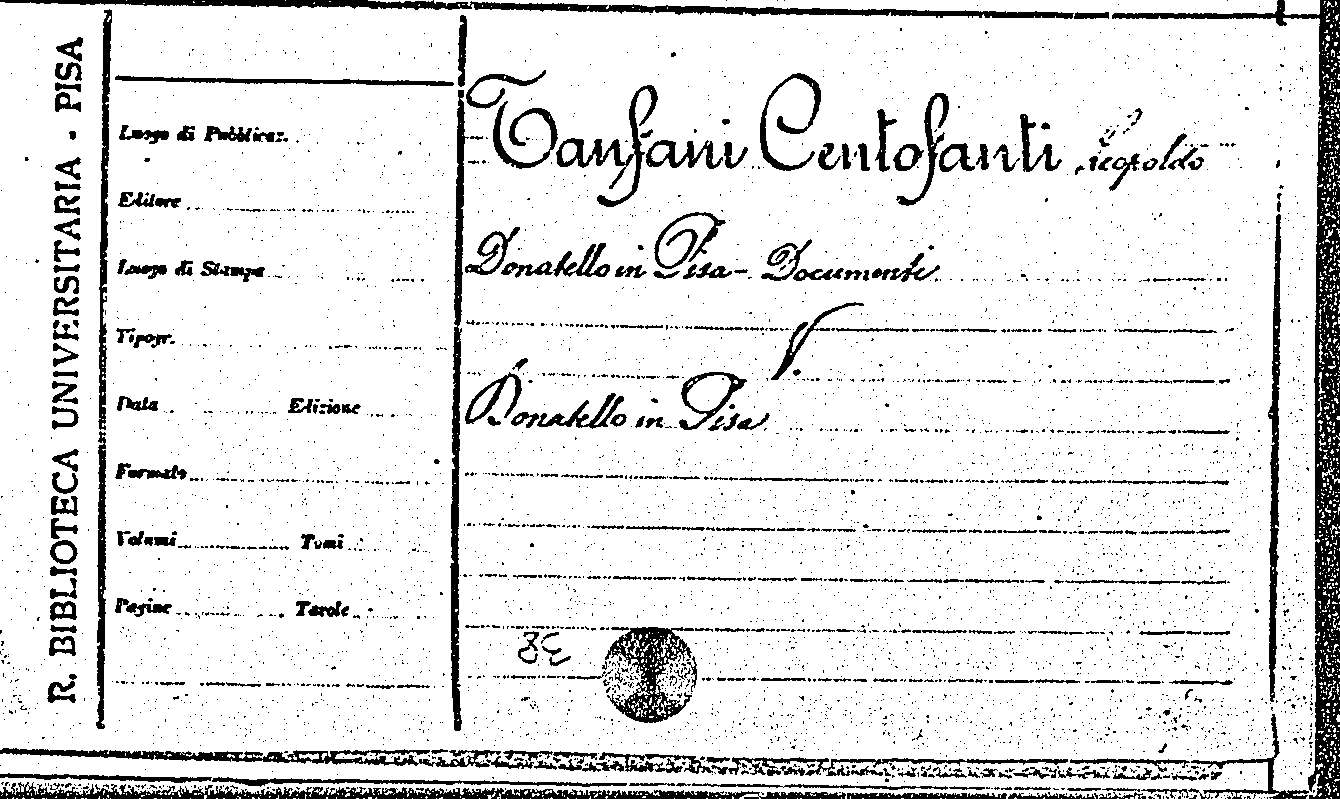 R. BIBLIOTECA UNIVERSITARIA - PISA
Luogo di Pubblicaz.
Editore
Luogo di Stampa
Tipogr.
Data Edizione
Formato
Volumi Tomi
Pagine Tavole
Tanfani Centofanti Leopoldo
Donatello in Pisa - Documenti
V.
Donatello in Pisa